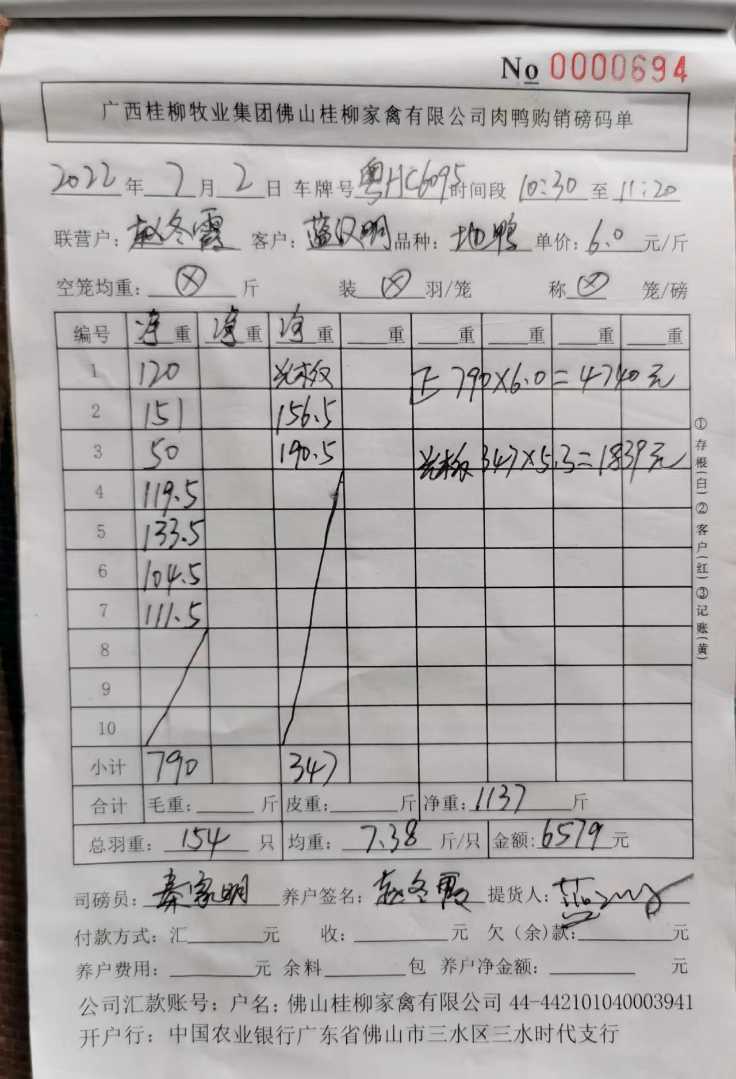 No 0000694
广西桂柳牧业集团佛山桂柳家禽有限公司肉鸭购销磅码单
2022年7月2日 车牌号粤HC6095时间段 10:30至11:20
联营户：赵冬霞 客户：蓝汉明 品种：地鸭 单价：6.0元/斤
空笼均重：⊗斤 装⊗羽/笼 称⊗笼/磅
编号 净重 净重 净重 重 重 重 重 重
1 120 光板 正 790×6.0=4740元
2 151 156.5
3 50 190.5 光板 347×5.3=1839元
4 119.5
5 133.5
6 104.5
7 111.5
8
9
10
小计 790 347
合计 毛重：斤 皮重：斤 净重：1137斤
总羽重：154只 均重：7.38斤/只 金额：6579元
司磅员：秦家明 养户签名：赵冬霞 提货人：
付款方式：汇元 收：元 欠（余）款：元
养户费用：元 余料包 养户净金额：元
公司汇款账号；户名；佛山桂柳家禽有限公司 44-442101040003941
开户行：中国农业银行广东省佛山市三水区三水时代支行
①存根(白)②客户(红)③记账(黄)